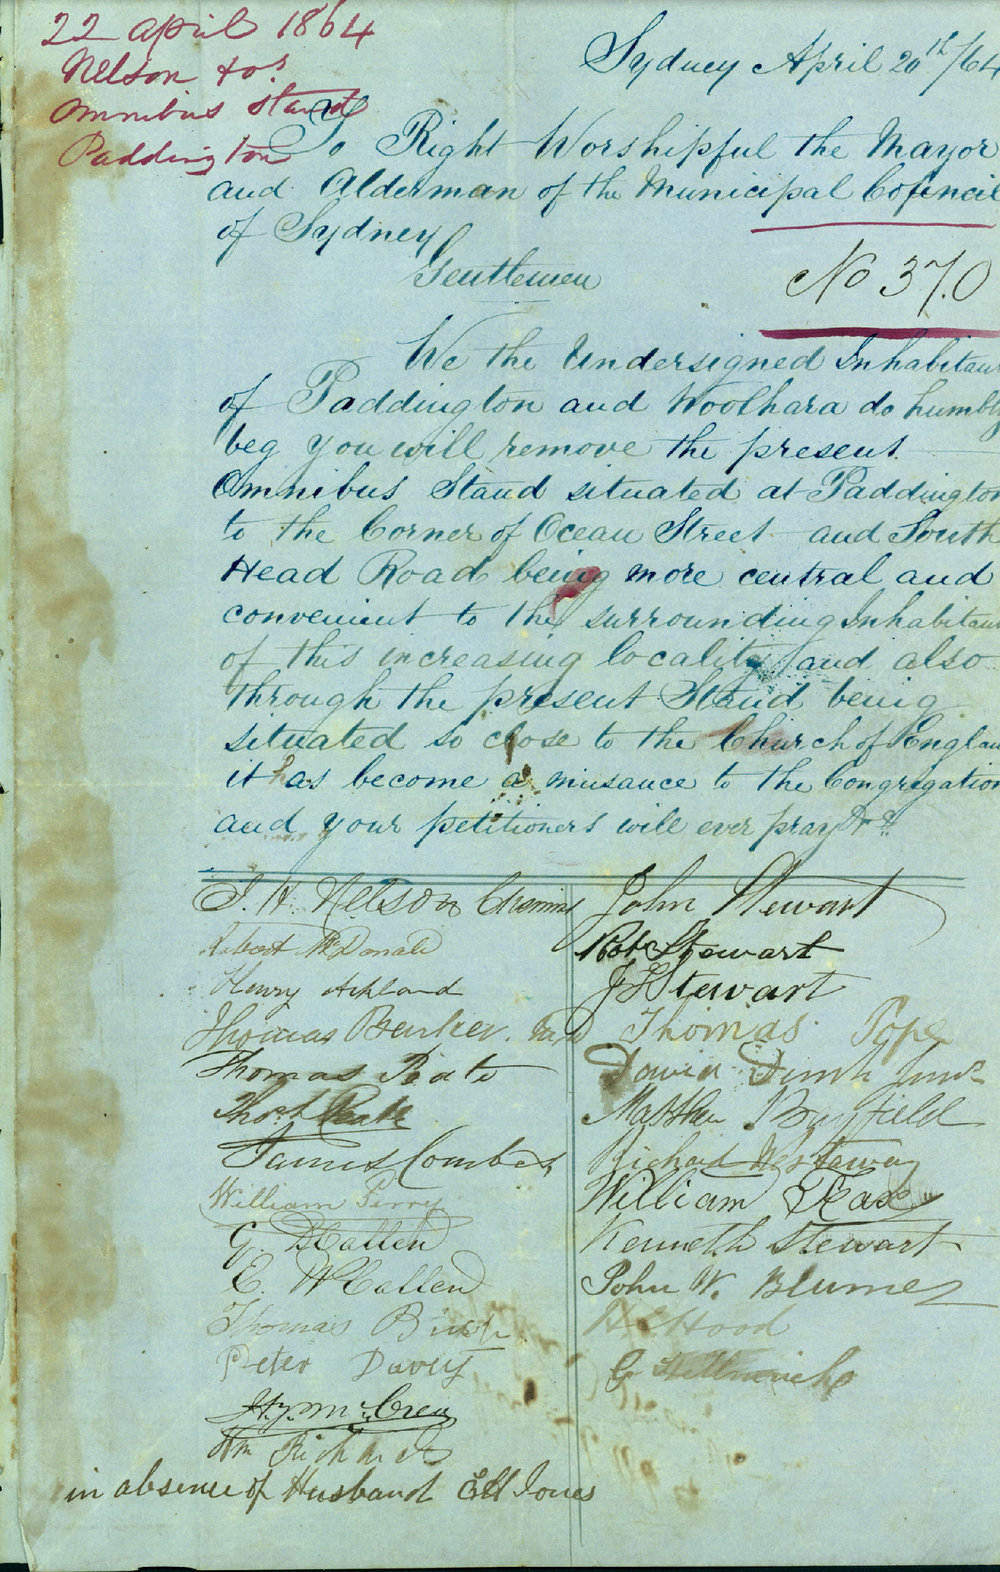 22 april 1864
Nelson & ors
omnibus stand
Paddington
Sydney April 20th/64
To Right Worshipful the Mayor
and Alderman of the Municipal Council
of Sydney
Gentlemen
No 370
We the Undersigned Inhabitan
of Paddington and Woolhara do humbly
beg you will remove the present
Omnibus Stand situated at Paddington
to the Corner of Ocean Street and South
Head Road being more central and
convenient to the surrounding Inhabitan
of this increasing locality and also
through the present Stand being
situated so close to the Church of Englan
it has become a nuisance to the Congregation
and your petitioners will ever pray &c
J. H. Nelson
Robert McDonald
Henry Ackland
Thomas Barker
Thomas Peate
Thos Peate
James Comber
William Perry
G. McCallen
E. McCallen
Thomas
Peter Davey
Hy. McCrea
Wm Richards
in absence of Husband E H Jones
John Stewart
Robt Stewart
J Stewart
Thomas Pope
David
Matthew Brayfield
Richard Westaway
William
Kenneth Stewart
John W. Blumer
H Hood
G